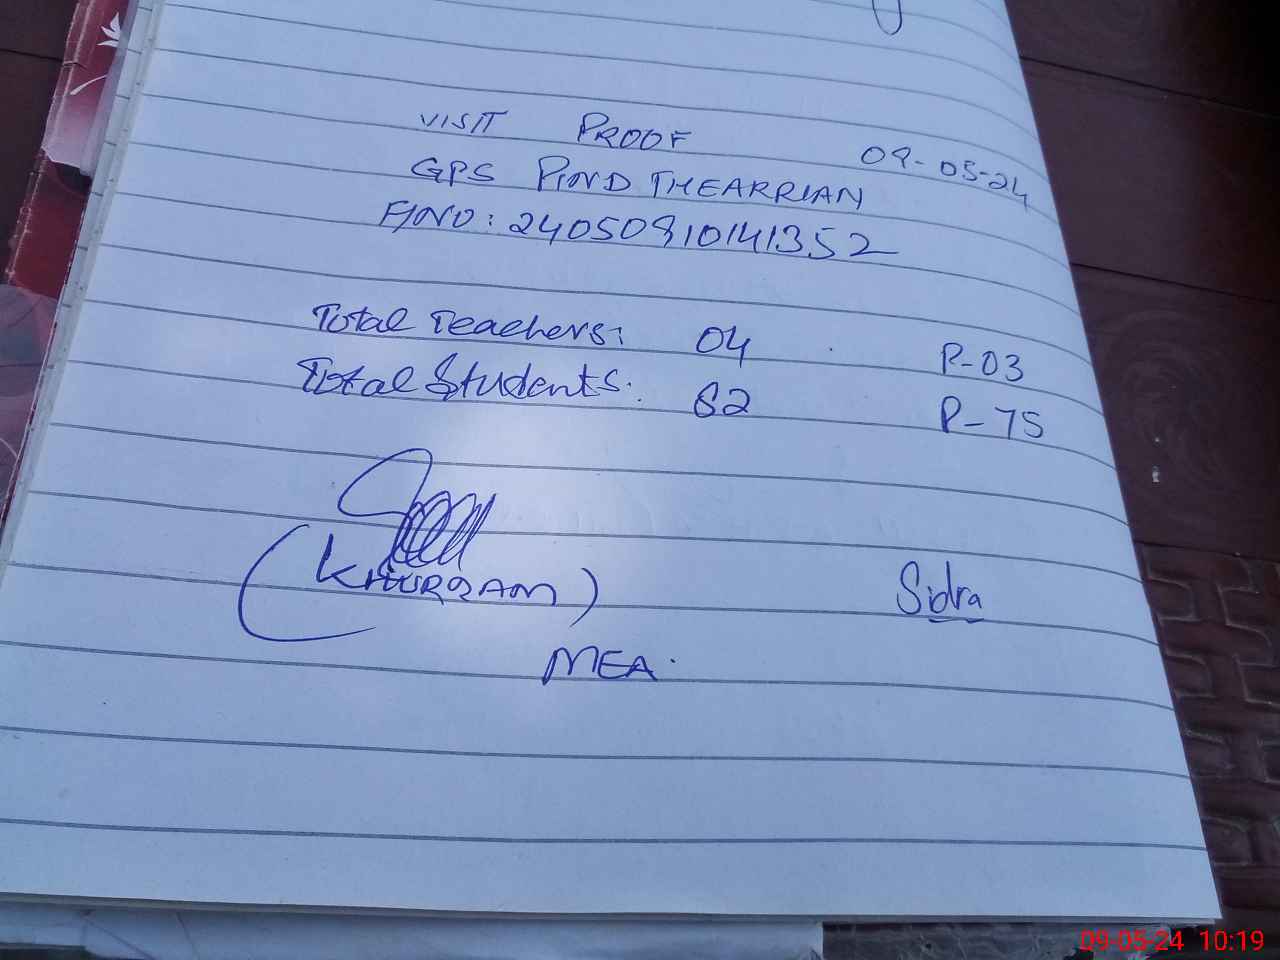 VISIT PROOF 09-05-24
GPS PIND THEARRIAN
F/NO: 24050910141352
Total Teachers: 04 P-03
Total Students: 82 P-75
(KHURRAM)
Sidra
MEA.
09-05-24 10:19